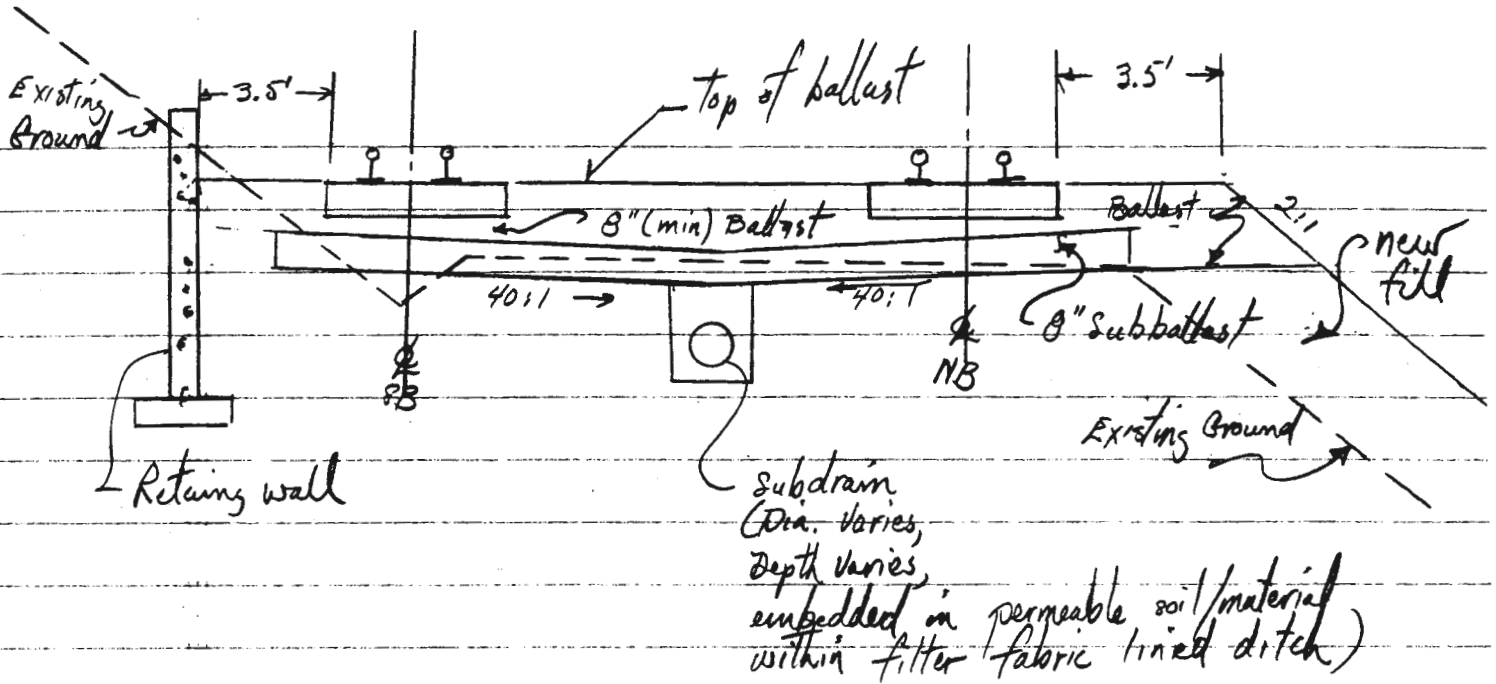 Existing
Ground
3.5'
top of ballast
3.5'
8" (min) Ballast
Ballast
2:1
new
fill
40:1
40:1
8" Subballast
℄
SB
℄
NB
Existing Ground
Retaing wall
Subdrain
(Dia. Varies,
Depth Varies,
embedded in permeable soil/material
within filter fabric lined ditch)